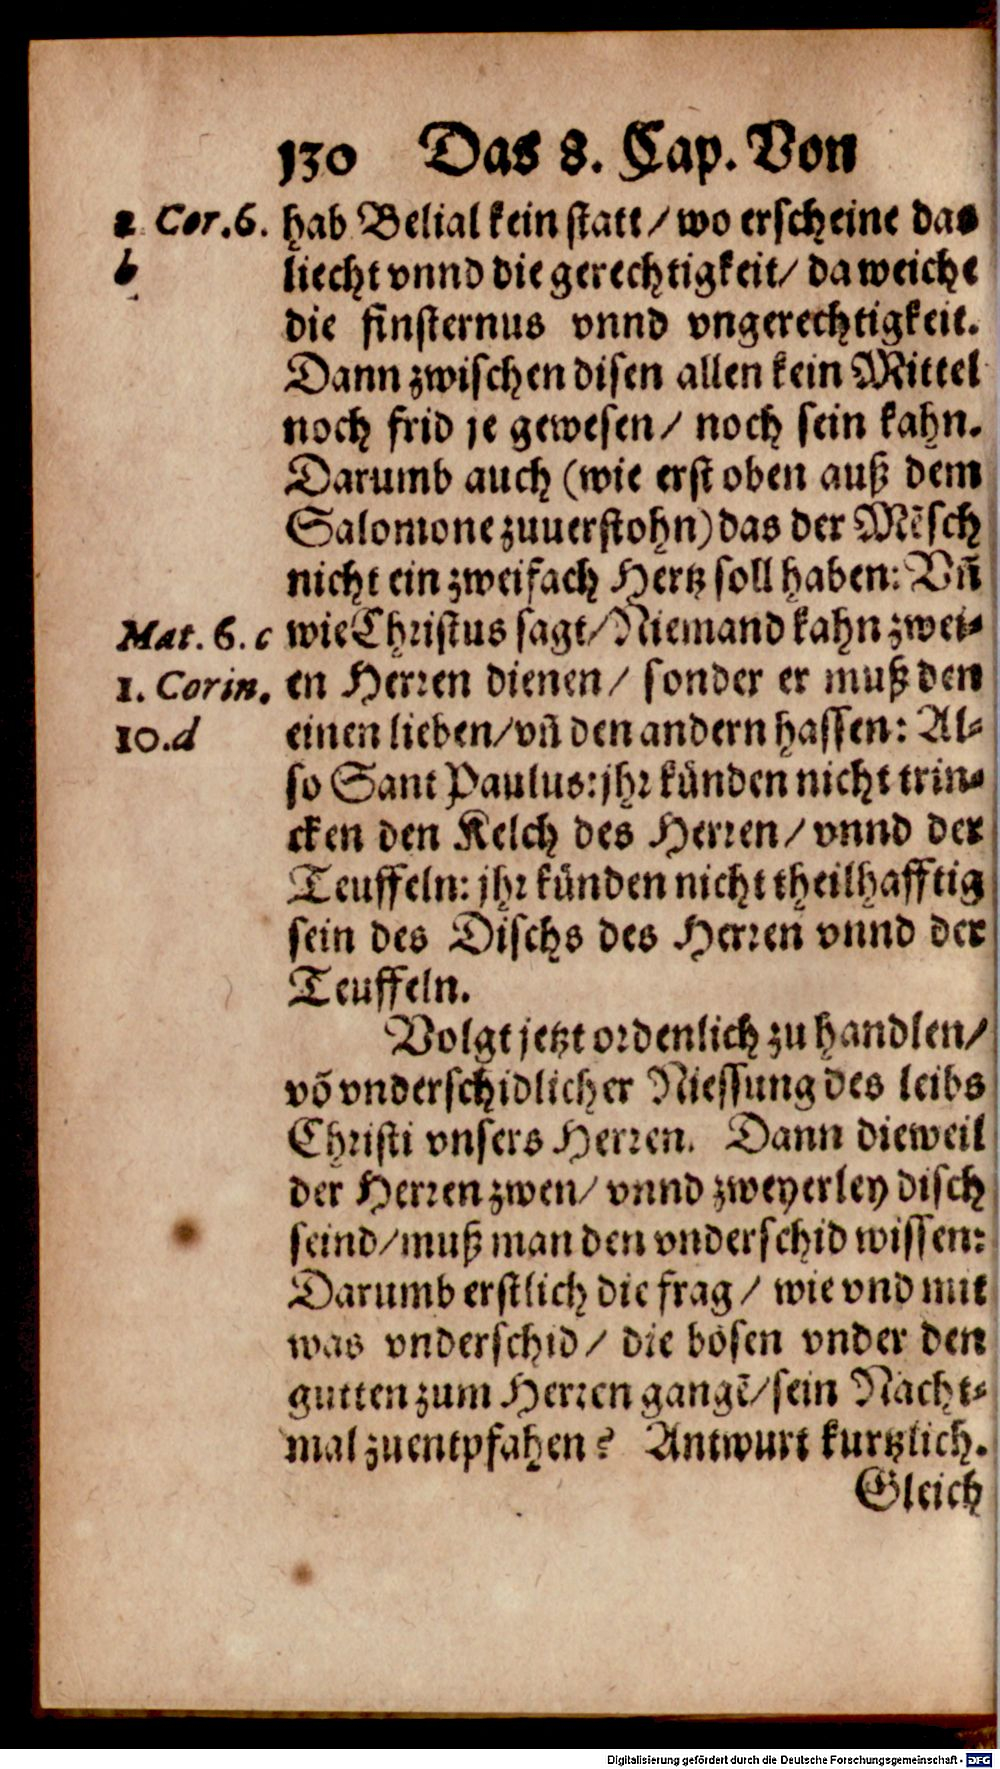 130 Das 8. Cap. Von
2. Cor. 6. hab Belial kein statt / wo erscheine das
b liecht vnnd die gerechtigkeit / da weiche
die finsternus vnnd vngerechtigkeit.
Dann zwischen disen allen kein Mittel
noch frid je gewesen / noch sein kahn.
Darumb auch (wie erst oben auß dem
Salomone zuuerstohn) das der Mẽsch
nicht ein zweifach Hertz soll haben: Vñ
Mat. 6. c wie Christus sagt / Niemand kahn zwei-
1. Corin. en Herren dienen / sonder er muß den
10. d einen lieben / vñ den andern hassen: Al-
so Sant Paulus: jhr künden nicht trin-
cken den Kelch des Herren / vnnd der
Teuffeln: jhr künden nicht theilhafftig
sein des Dischs des Herren vnnd der
Teuffeln.
Volgt jetzt ordenlich zu handlen /
võ vnderschidlicher Niessung des leibs
Christi vnsers Herren. Dann dieweil
der Herren zwen / vnnd zweyerley disch
seind / muß man den vnderschid wissen:
Darumb erstlich die frag / wie vnd mit
was vnderschid / die bösen vnder den
gutten zum Herren gangẽ / sein Nacht-
mal zuentpfahen? Antwurt kurtzlich.
Gleich
Digitalisierung gefördert durch die Deutsche Forschungsgemeinschaft - DFG